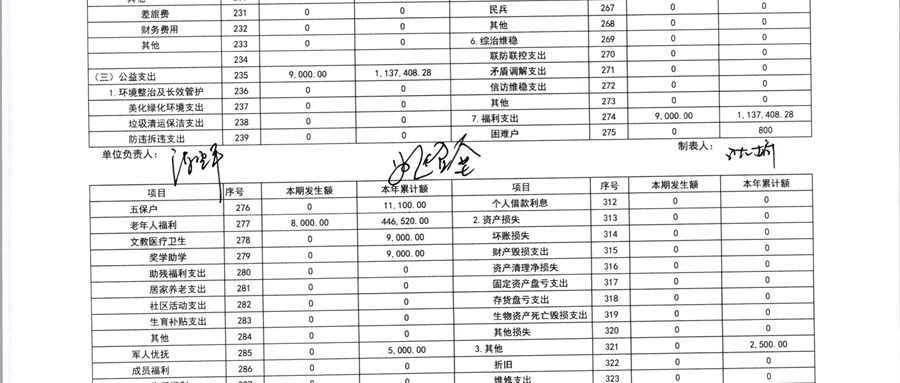 差旅费 231 0 0 民兵 267 0 0
财务费用 232 0 0 其他 268 0 0
其他 233 0 0 6.综治维稳 269 0 0
234 联防联控支出 270 0 0
(三)公益支出 235 9,000.00 1,137,408.28 矛盾调解支出 271 0 0
1.环境整治及长效管护 236 0 0 信访维稳支出 272 0 0
美化绿化环境支出 237 0 0 其他 273 0 0
垃圾清运保洁支出 238 0 0 7.福利支出 274 9,000.00 1,137,408.28
防违拆违支出 239 0 0 困难户 275 0 800
单位负责人: 制表人:
项目 序号 本期发生额 本年累计额 项目 序号 本期发生额 本年累计额
五保户 276 0 11,100.00 个人借款利息 312 0 0
老年人福利 277 8,000.00 446,520.00 2.资产损失 313 0 0
文教医疗卫生 278 0 9,000.00 坏账损失 314 0 0
奖学助学 279 0 9,000.00 财产毁损支出 315 0 0
助残福利支出 280 0 0 资产清理净损失 316 0 0
居家养老支出 281 0 0 固定资产盘亏支出 317 0 0
社区活动支出 282 0 0 存货盘亏支出 318 0 0
生育补贴支出 283 0 0 生物资产死亡毁损支出 319 0 0
其他 284 0 0 其他损失 320 0 0
军人优抚 285 0 5,000.00 3.其他 321 0 2,500.00
成员福利 286 0 0 折旧 322 0 0
维修支出 323 0 0